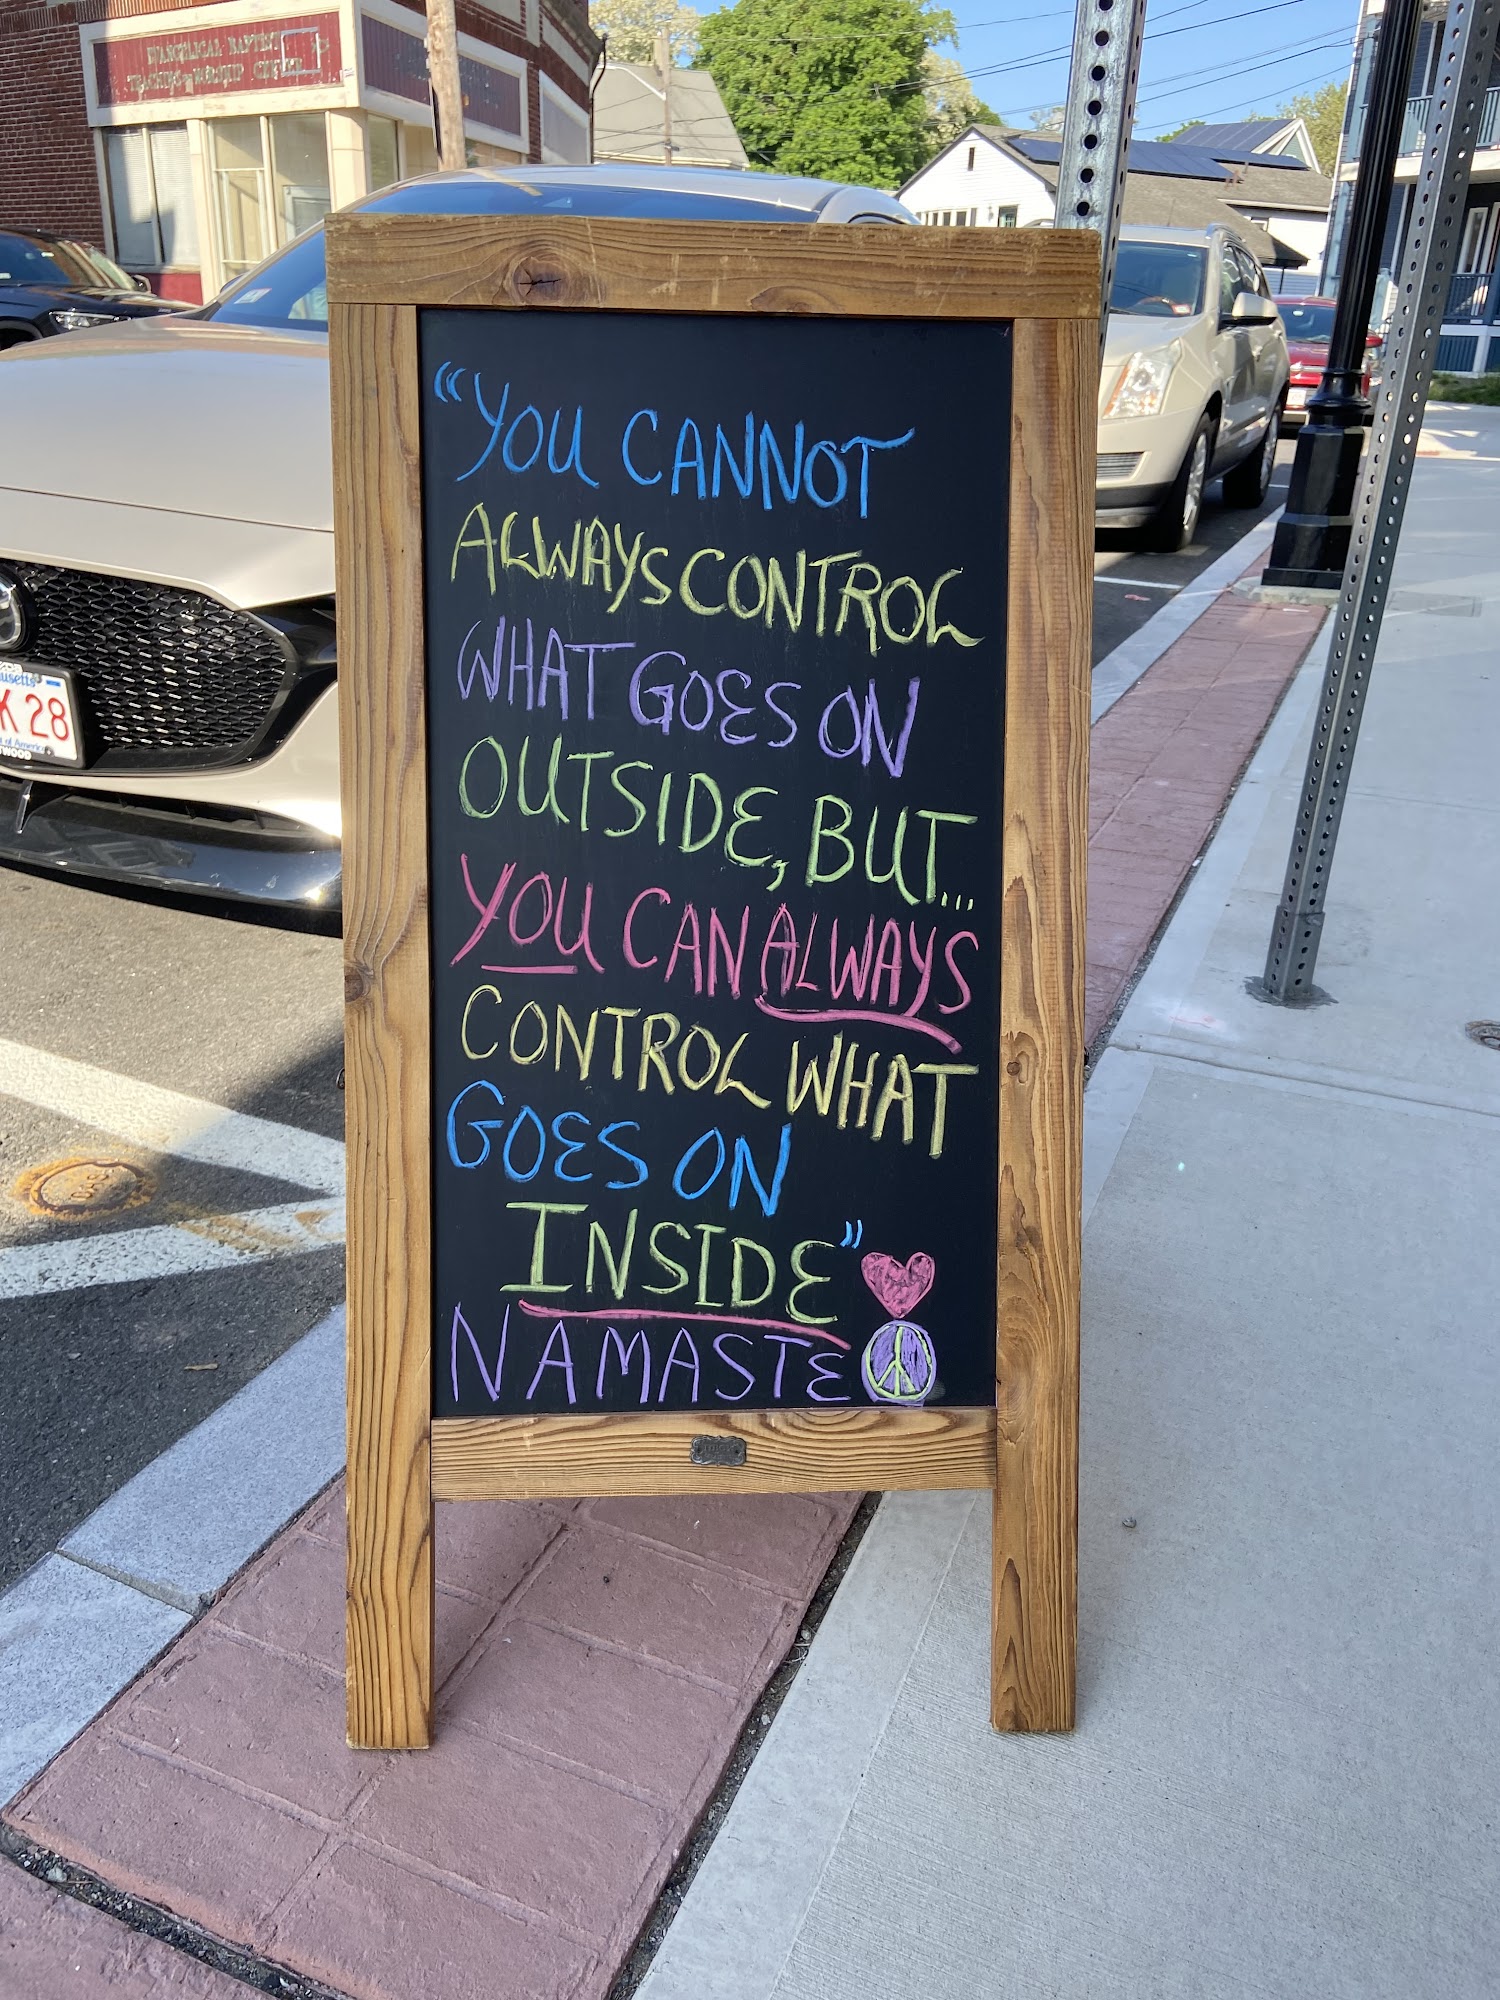 EVANGELICAL BAPTIST
TEACHING & WORSHIP CENTER
"YOU CANNOT
ALWAYS CONTROL
WHAT GOES ON
OUTSIDE, BUT...
YOU CAN ALWAYS
CONTROL WHAT
GOES ON
INSIDE"
NAMASTE
K 28